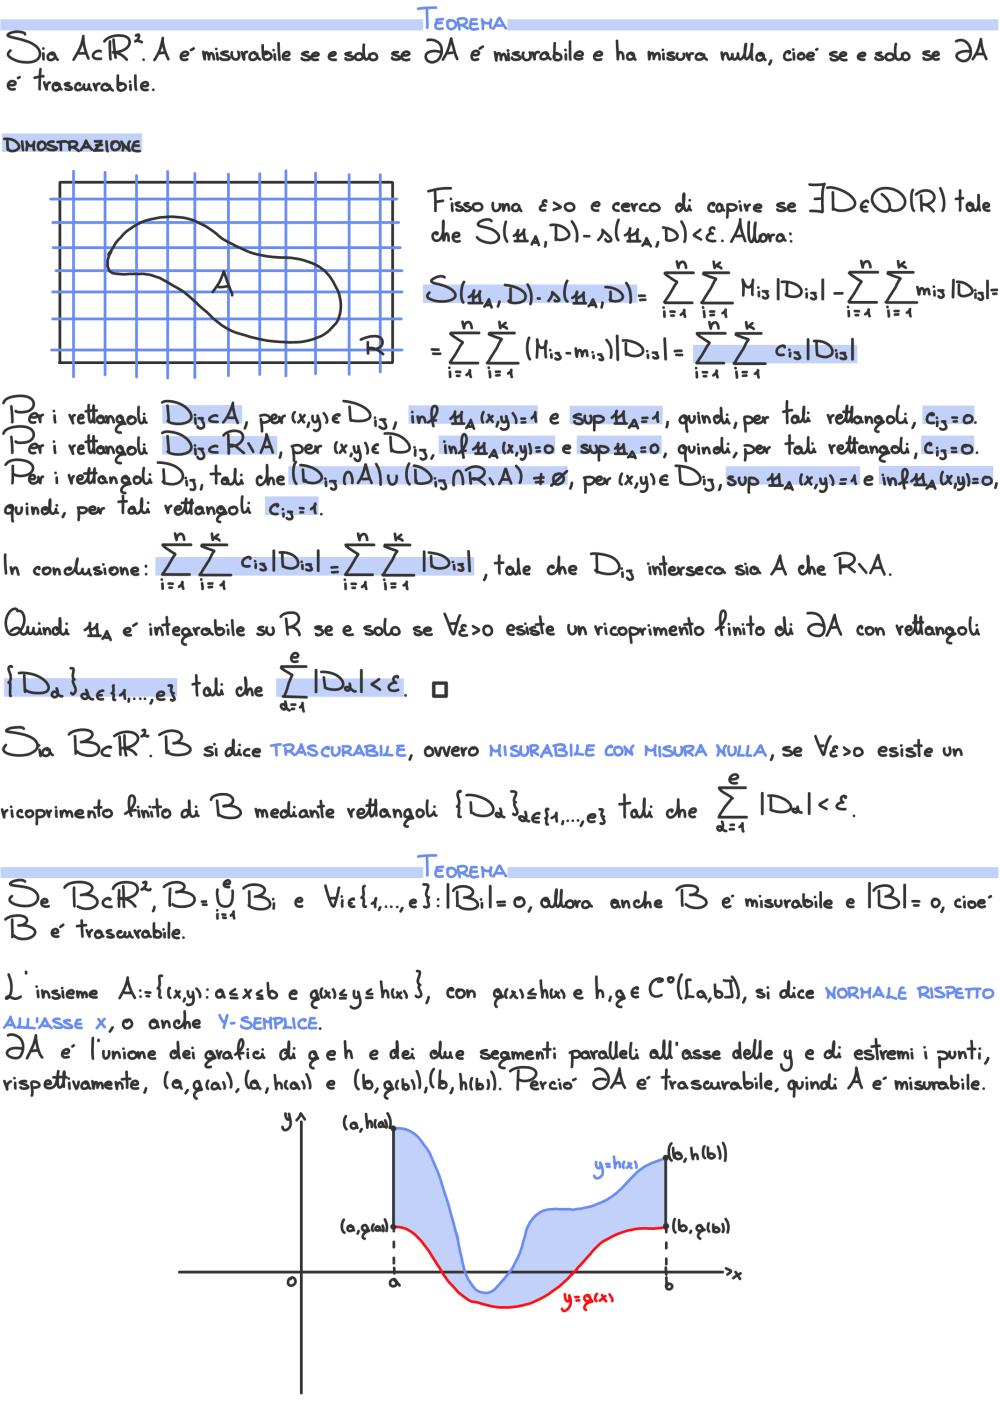 TEOREMA
Sia A⊂ℝ². A é misurabile se e solo se ∂A é misurabile e ha misura nulla, cioé se e solo se ∂A
é trascurabile.
DIMOSTRAZIONE
Fisso una ε>0 e cerco di capire se ∃D∈𝒟(R) tale
che S(𝟙_A, D) - s(𝟙_A, D) < ε. Allora:
S(𝟙_A, D) - s(𝟙_A, D) = ∑_{i=1}^{n} ∑_{i=1}^{k} M_{ij} |D_{ij}| - ∑_{i=1}^{n} ∑_{i=1}^{k} m_{ij} |D_{ij}| =
= ∑_{i=1}^{n} ∑_{i=1}^{k} (M_{ij} - m_{ij}) |D_{ij}| = ∑_{i=1}^{n} ∑_{i=1}^{k} c_{ij} |D_{ij}|
A
R
Per i rettangoli D_{ij}⊂A, per (x,y)∈D_{ij}, inf 𝟙_A(x,y)=1 e sup 𝟙_A=1, quindi, per tali rettangoli, c_{ij}=0.
Per i rettangoli D_{ij}⊂R∖A, per (x,y)∈D_{ij}, inf 𝟙_A(x,y)=0 e sup 𝟙_A=0, quindi, per tali rettangoli, c_{ij}=0.
Per i rettangoli D_{ij}, tali che (D_{ij}∩A)∪(D_{ij}∩R∖A) ≠ ∅, per (x,y)∈D_{ij}, sup 𝟙_A(x,y)=1 e inf 𝟙_A(x,y)=0,
quindi, per tali rettangoli c_{ij}=1.
In conclusione: ∑_{i=1}^{n} ∑_{i=1}^{k} c_{ij} |D_{ij}| = ∑_{i=1}^{n} ∑_{i=1}^{k} |D_{ij}|, tale che D_{ij} interseca sia A che R∖A.
Quindi 𝟙_A é integrabile su R se e solo se ∀ε>0 esiste un ricoprimento finito di ∂A con rettangoli
{D_α}_{α∈{1,...,e}} tali che ∑_{α=1}^{e} |D_α| < ε. □
Sia B⊂ℝ². B si dice TRASCURABILE, ovvero MISURABILE CON MISURA NULLA, se ∀ε>0 esiste un
ricoprimento finito di B mediante rettangoli {D_α}_{α∈{1,...,e}} tali che ∑_{α=1}^{e} |D_α| < ε.
TEOREMA
Se B⊂ℝ², B = ⋃_{i=1}^{e} B_i e ∀i∈{1,...,e}: |B_i| = 0, allora anche B é misurabile e |B| = 0, cioé
B é trascurabile.
L'insieme A:={(x,y): a≤x≤b e g(x)≤y≤h(x)}, con g(x)≤h(x) e h,g∈C⁰([a,b]), si dice NORMALE RISPETTO
ALL'ASSE X, o anche Y-SEMPLICE.
∂A é l'unione dei grafici di g e h e dei due segmenti paralleli all'asse delle y e di estremi i punti,
rispettivamente, (a,g(a)),(a,h(a)) e (b,g(b)),(b,h(b)). Perció ∂A é trascurabile, quindi A é misurabile.
y
(a,h(a))
(b,h(b))
y=h(x)
(a,g(a))
(b,g(b))
x
0
a
b
y=g(x)